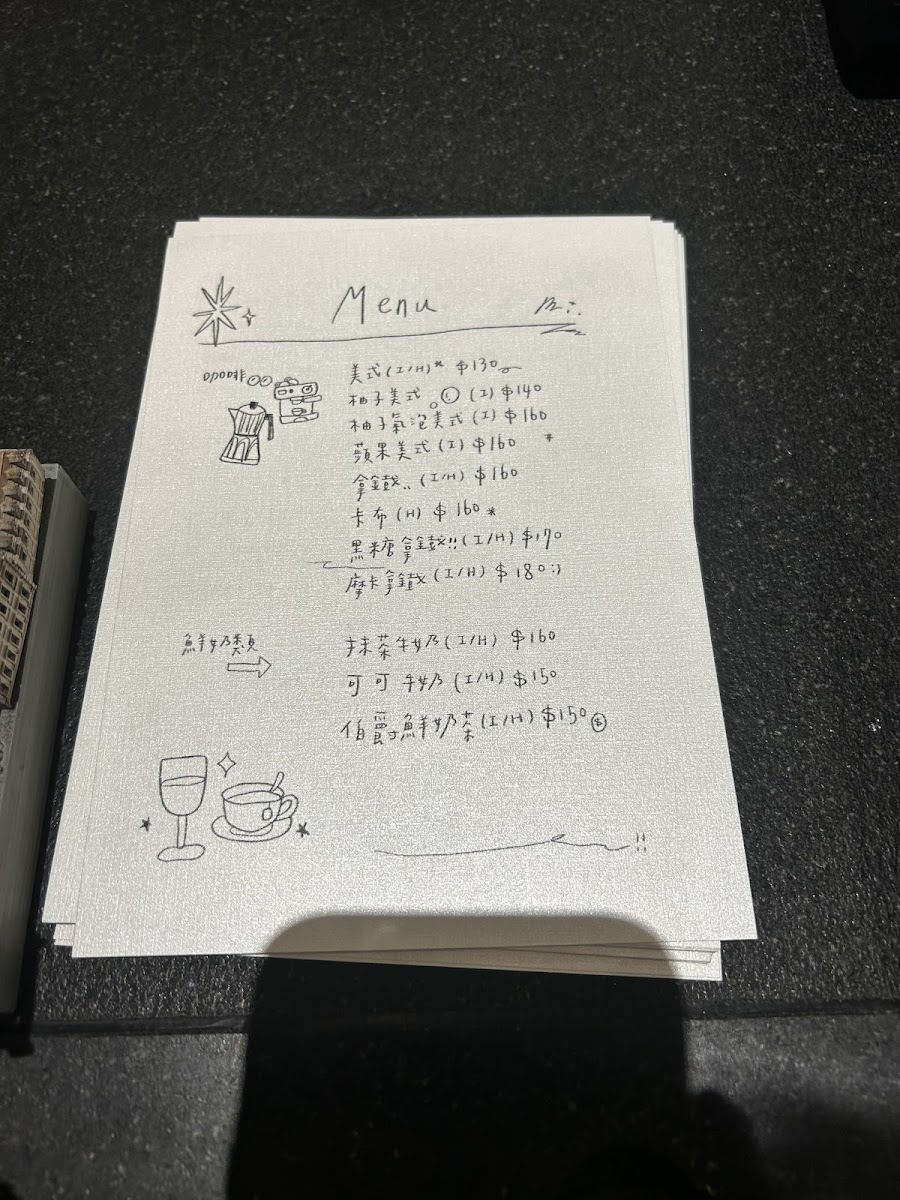 Menu
咖啡
美式(I/H)* $130
柚子美式 (I) $140
柚子氣泡美式(I) $160
蘋果美式(I) $160 *
拿鐵..(I/H) $160
卡布(H) $160*
黑糖拿鐵!!(I/H) $170
摩卡拿鐵(I/H) $180:)
鮮奶類
抹茶牛奶(I/H) $160
可可牛奶(I/H) $150
伯爵鮮奶茶(I/H) $150